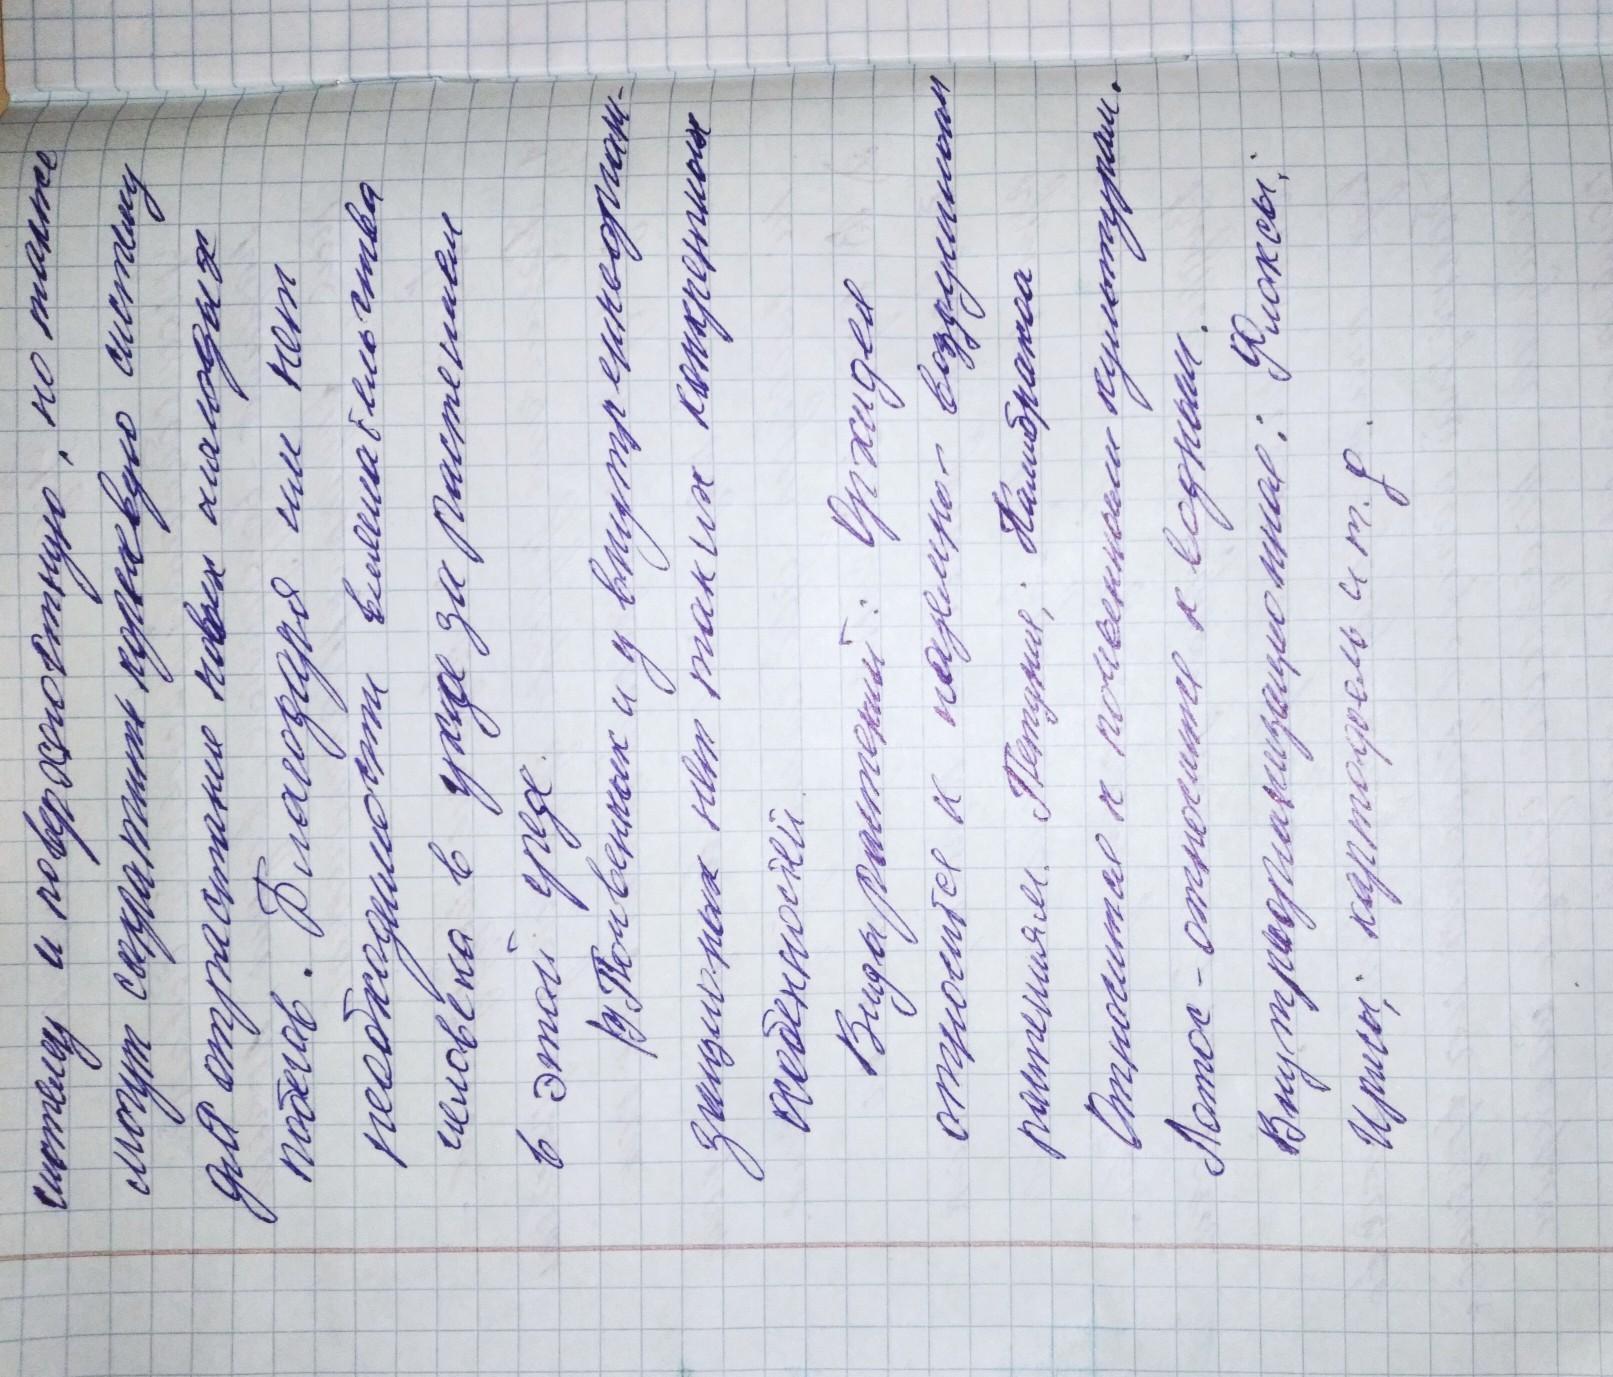 систему и поверхностную, но также
могут сворачить корневую систему
для отрастание новых молодых
побегов. Благодаря им нет
необходимости вмешательства
человека в уходе за растением
в этой среде.
Почвенных и у внутреннеорган-
зиционных нет таких конкретных
особенностей.
Виды растений: Орхидея
относится к наземно-воздушном
растениям. Петуния; Калибрахоа
Относится к почвенном культурам.
Лотос - относится к водным.
Внутриорганизационные: Флоксы;
Ирисы; картофель и т.д.